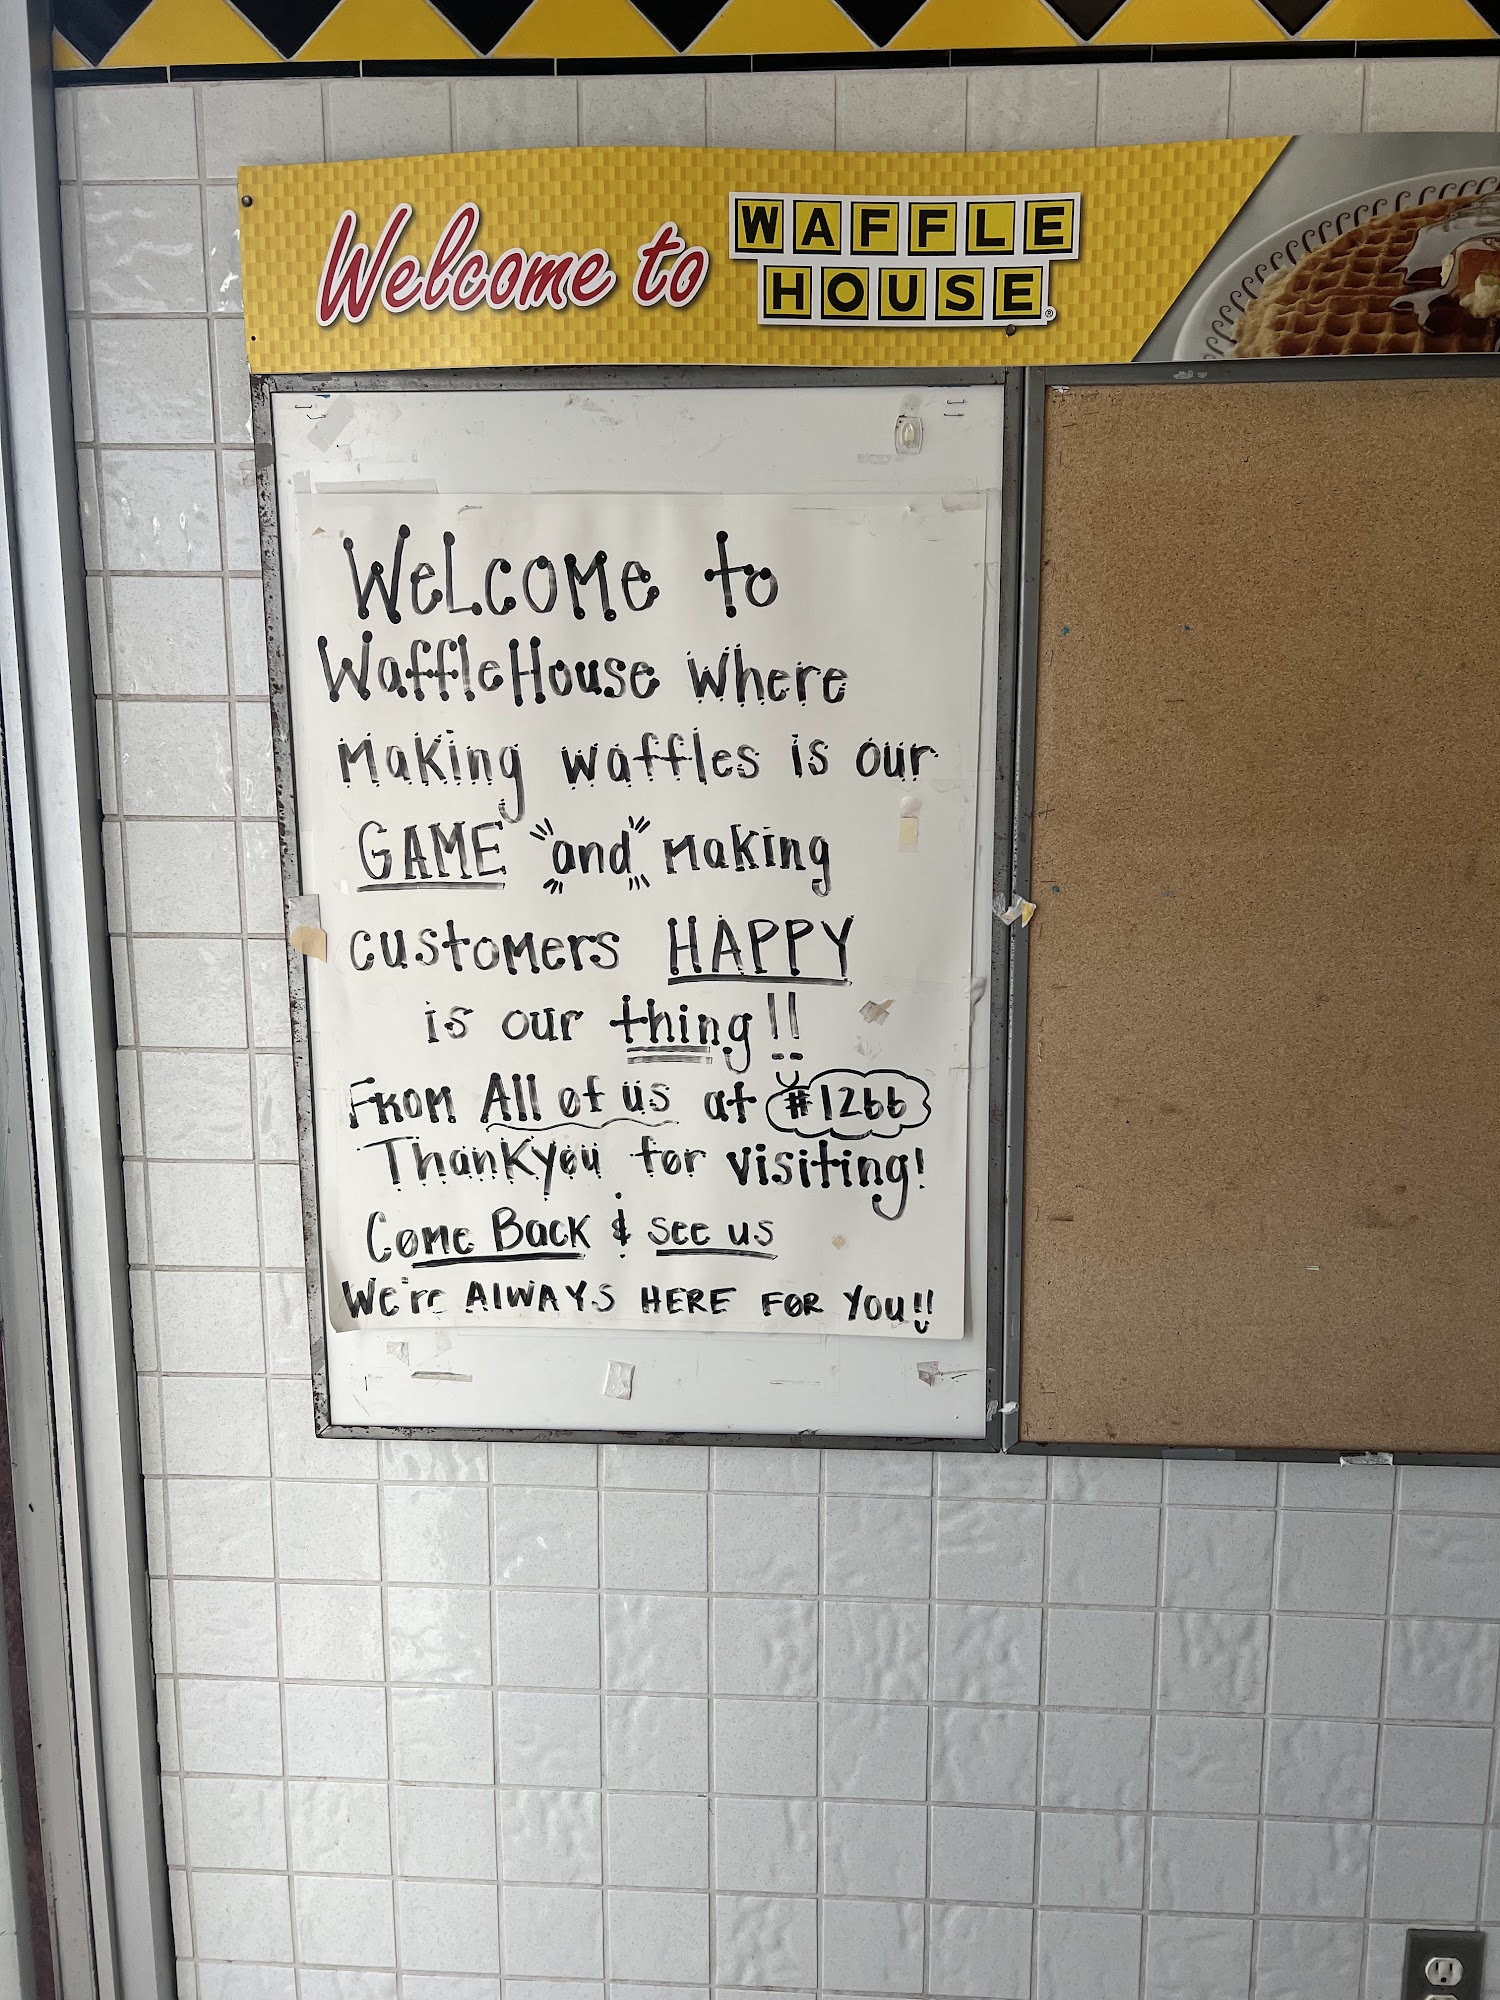 Welcome to WAFFLE HOUSE®
WeLCOMe to
WaffleHouse where
Making waffles is our
GAME "and" Making
customers HAPPY
is our thing!!
FROM All of us at #1266
Thankyou for visiting!
Come Back & see us
We're AlWAYS HERE FOR YOU!!